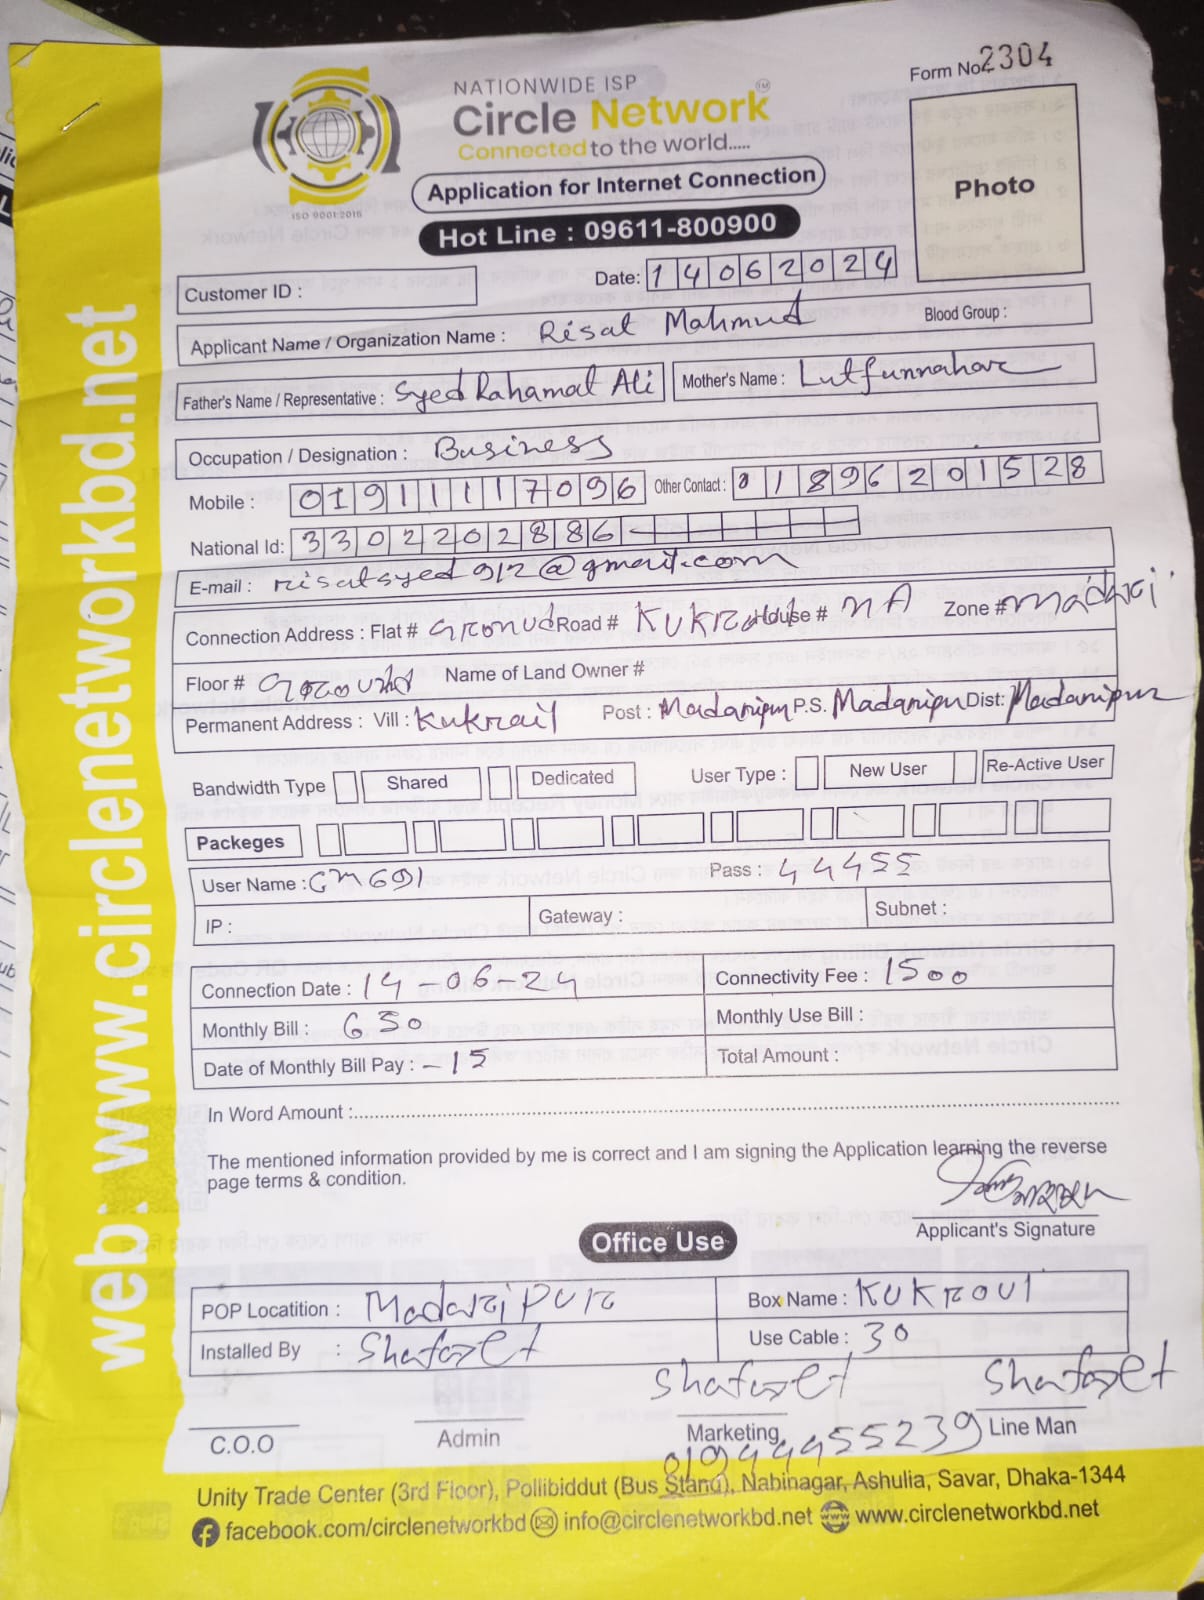 Form No. 2304
NATIONWIDE ISP
Circle Network
Connected to the world.....
ISO 9001:2015
Application for Internet Connection
Hot Line : 09611-800900
Photo
Customer ID :
Date: 14062024
Applicant Name / Organization Name : Risat Mahmud Blood Group :
Father's Name / Representative : Syed Rahamat Ali Mother's Name : Lutfunnahar
Occupation / Designation : Business
Mobile : 01911117096 Other Contact : 01896201528
National Id: 3302202886
E-mail : risatsyed912@gmail.com
Connection Address : Flat # Road # House # NA Zone #
Floor # Name of Land Owner #
Permanent Address : Vill : Kukrail Post : Madaripur P.S. Madaripur Dist: Madaripur
Bandwidth Type Shared Dedicated User Type : New User Re-Active User
Packeges
User Name : Pass : 44455
IP : Gateway : Subnet :
Connection Date : 14-06-24 Connectivity Fee : 1500
Monthly Bill : 630 Monthly Use Bill :
Date of Monthly Bill Pay : -15 Total Amount :
In Word Amount :
The mentioned information provided by me is correct and I am signing the Application learning the reverse
page terms & condition.
Applicant's Signature
Office Use
POP Locatition : Madaripur Box Name :
Installed By : Use Cable : 30
C.O.O Admin Marketing Line Man
01944955239
Unity Trade Center (3rd Floor), Pollibiddut (Bus Stand), Nabinagar, Ashulia, Savar, Dhaka-1344
facebook.com/circlenetworkbd info@circlenetworkbd.net www.circlenetworkbd.net
web: www.circlenetworkbd.net